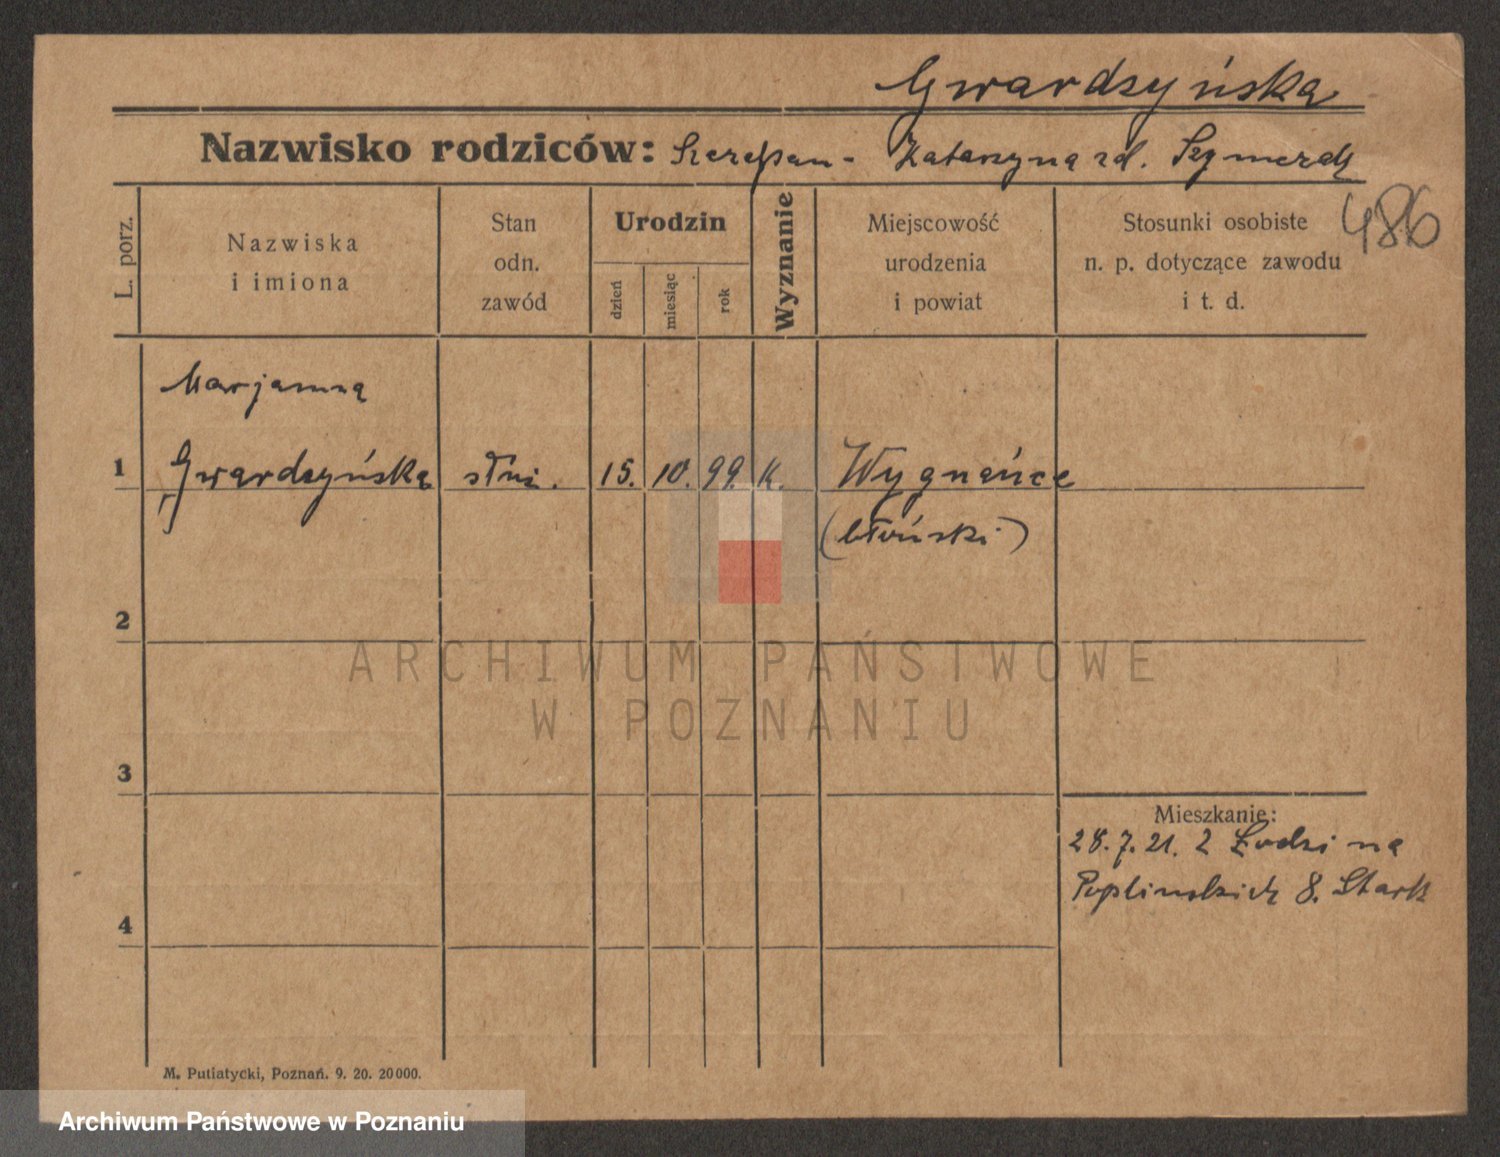 Gwardsyńska
Nazwisko rodziców: Szczepan - Katarzyna zd.
486
L. porz.
Nazwiska i imiona
Stan odn. zawód
Urodzin
dzień
miesiąc
rok
Wyznanie
Miejscowość urodzenia i powiat
Stosunki osobiste n. p. dotyczące zawodu i t. d.
Marjanna
1 Gwardsyńska służ. 15. 10. 99. K. Wygnańce
(błoński)
2
ARCHIWUM PAŃSTWOWE
W POZNANIU
3
Mieszkanie:
28. 7. 21. z Łodzi na
Poplińskich 8. Stark
4
M. Putiatycki, Poznań. 9. 20. 20000.
Archiwum Państwowe w Poznaniu